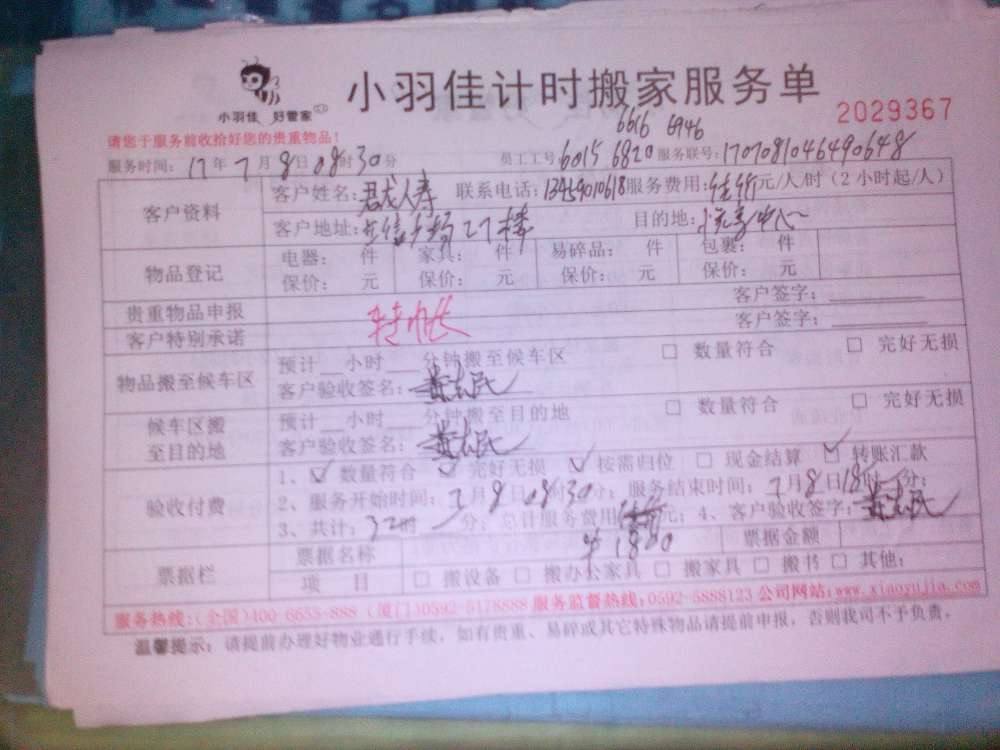 小羽佳 好管家
小羽佳计时搬家服务单
2029367
请您于服务前收拾好您的贵重物品!
6616 6946
服务时间: 17年7月8日08时30分 员工工号 6015 6820 服务联号: 1707081046490648
客户资料
客户姓名: 君龙人寿 联系电话: 服务费用: 元/人/时(2小时起/人)
客户地址: 27楼 目的地:
物品登记
电器: 件 家具: 件 易碎品: 件 包裹: 件
保价: 元 保价: 元 保价: 元 保价: 元
贵重物品申报 客户签字:
客户特别承诺 客户签字:
物品搬至候车区
预计 小时 分钟搬至候车区 □ 数量符合 □ 完好无损
客户验收签名:
候车区搬至目的地
预计 小时 分钟搬至目的地 □ 数量符合 □ 完好无损
客户验收签名:
验收付费
1、☑ 数量符合 ☑ 完好无损 ☑ 按需归位 □ 现金结算 ☑ 转账汇款
2、服务开始时间: 7月8日08时30分; 服务结束时间: 7月8日18时 分;
3、共计: 32时 分; 总计服务费用 元; 4、客户验收签字:
¥1880
票据栏
票据名称 票据金额
项 目 □ 搬设备 □ 搬办公家具 □ 搬家具 □ 搬书 □ 其他:
服务热线:(全国)400-6655-888 (厦门)0592-5178888 服务监督热线:0592-5888123 公司网站:www.xiaoyujia.com
温馨提示: 请提前办理好物业通行手续, 如有贵重、易碎或其它特殊物品请提前申报, 否则我司不予负责。